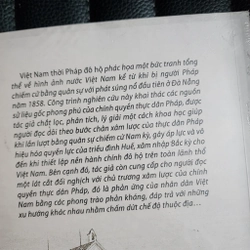 Việt Nam thời Pháp đô hộ phác họa một bức tranh tổng
thể về hình ảnh nước Việt Nam kể từ khi bị người Pháp
chiếm cứ bằng quân sự với phát súng nổ đầu tiên ở Đà Nẵng
năm 1858. Công trình nghiên cứu này khai thác các nguồn
sử liệu gốc phong phú của chính quyền thực dân Pháp, được
tác giả chắt lọc, phân tích, lý giải một cách khoa học giúp
người đọc dõi theo bước chân xâm lược của thực dân Pháp
khi lần lượt bằng quân sự chiếm cứ Nam kỳ, gây áp lực và vô
hiệu hóa quyền lực của triều đình Huế, xâm nhập Bắc kỳ cho
đến khi thiết lập nên hành chính đô hộ trên toàn lãnh thổ
Việt Nam. Bên cạnh đó, tác giả còn cung cấp cho người đọc
một lát cắt đối nghịch với chủ trương xâm lược của chính
quyền thực dân Pháp, đó là phản ứng của nhân dân Việt
Nam bằng các phong trào phản kháng, đáp trả với những
xu hướng khác nhau nhằm chấm dứt chế độ thuộc địa...